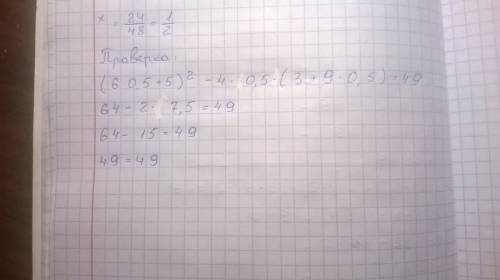 x = 24/48 = 1/2
Проверка:
(6 0,5+5)² - 4 · 0,5 · (3+9·0,5) = 49
64 - 2 · 7,5 = 49
64 - 15 = 49
49 = 49